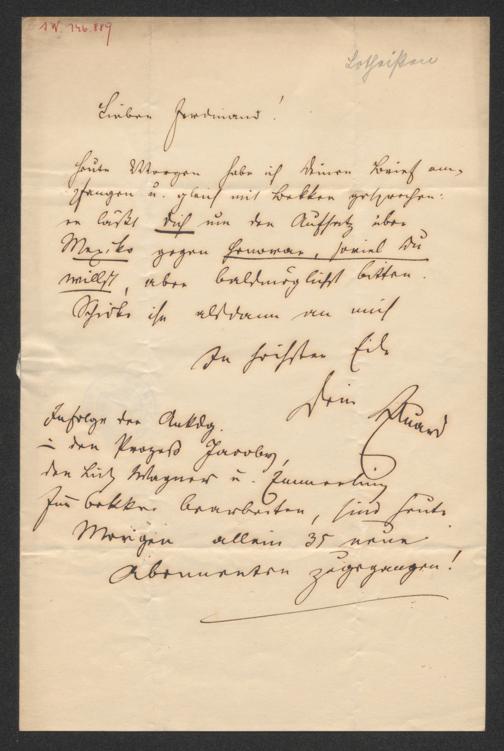 Lotheißen
Lieber Ferdinand!
Heute Morgen habe ich Deinen Brief em-
pfangen u. gleich mit Bekker gesprochen:
er läßt Dich um den Aufsatz über
Mexiko gegen Honorar, soviel Du
willst, aber baldmöglichst bitten.
Schicke ihn alsdann an mich
In höchster Eile
Dein Eduard
Infolge der Ankdg.
den Prozeß Jacoby,
den Wagner u. Emmerling
für Bekker bearbeiten, sind heute
Morgen allein 35 neue
Abonnenten zugegangen!